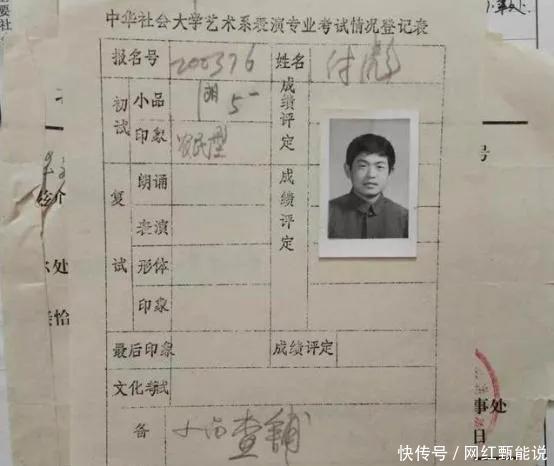 中华社会大学艺术系表演专业考试情况登记表
报名号 200376 姓名 付彪
初试 小品 5- 成绩评定
印象 农民型
复试 朗诵 成绩评定
表演
形体
印象
最后印象 成绩评定
文化考试
备 小品查铺
号
事处
日
快传号 / 网红甄能说